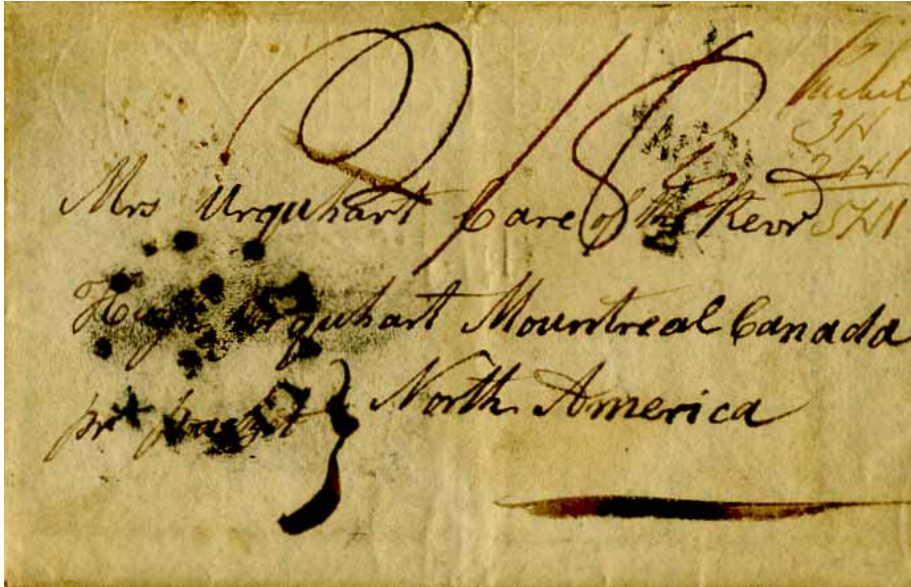 Packet
3H
2H1
5H1
2/8
Mrs Urquhart Care of the Revr
Hugh Urquhart Mountreal Canada
pr packet } North America